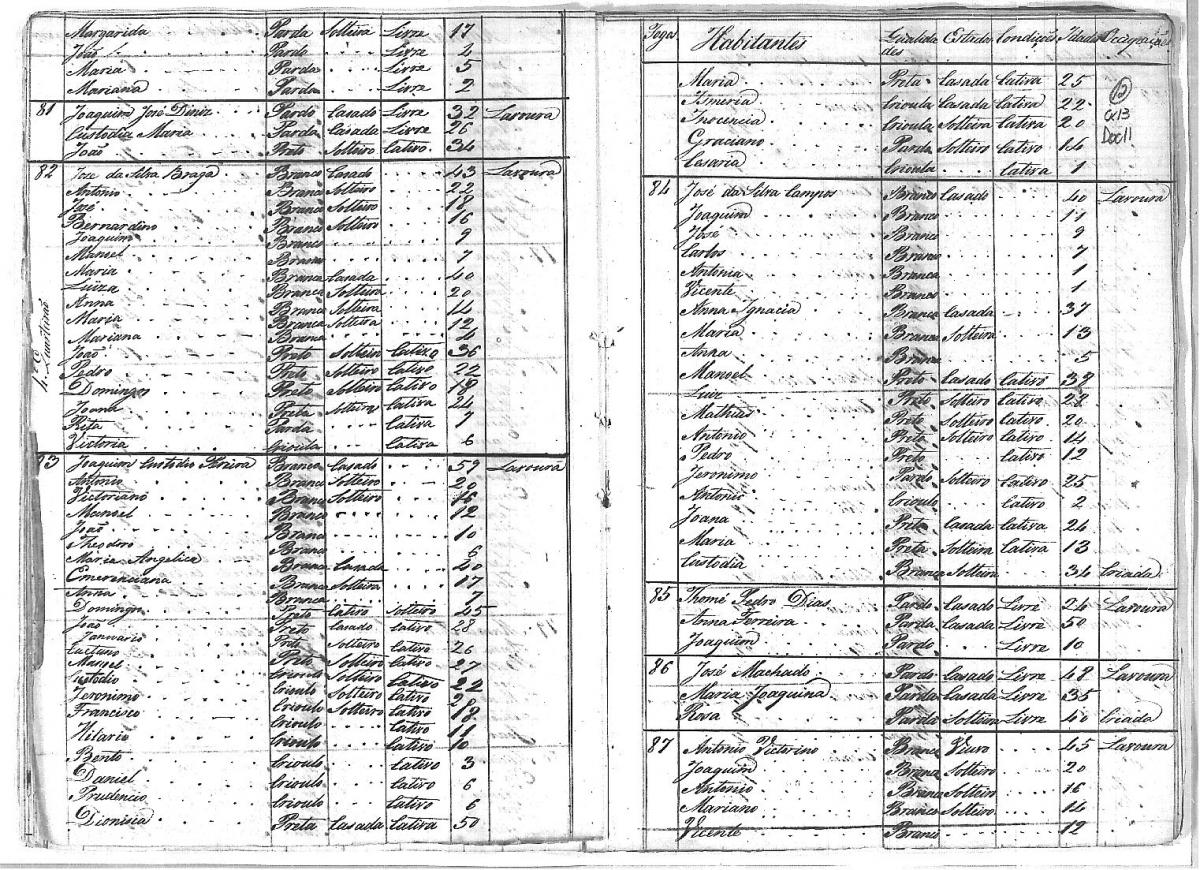 Margarida Parda Solteira Livre 17
João Pardo Livre 4
Maria Parda Livre 5
Mariana Parda Livre 2
81 Joaquim José Diniz Pardo Casado Livre 32 Lavoura
Custodia Maria Parda Casada Livre 26
João Preto Solteiro Cativo 34
82 Joze da Silva Braga Branco Casado 43 Lavoura
Antonio Branco Solteiro 22
José Branco Solteiro 18
Bernardino Branco Solteiro 16
Joaquim Branco 9
Manoel Branco 7
Maria Branca Casada 40
Luiza Branca Solteira 20
Anna Branca Solteira 14
Maria Branca Solteira 12
Mariana Branca 4
João Preto Solteiro Cativo 36
Pedro Preto Solteiro Cativo 22
Domingos Preto Solteiro Cativo 18
Joana Preta Solteira Cativa 24
Rita Parda Cativa 7
Victoria Crioula Cativa 6
Quartirão
83 Joaquim Custodio Pereira Branco Casado 59 Lavoura
Antonio Branco Solteiro 20
Victoriano Branco Solteiro 16
Manoel Branco 12
João Branco 10
Theodoro Branco 6
Maria Angelica Branca Casada 40
Emerenciana Branca Solteira 17
Anna Branca 7
Domingos Preto Cativo Solteiro 45
João Preto Casado Cativo 28
Januario Preto Solteiro Cativo 26
Caetano Preto Solteiro Cativo 27
Manoel Crioulo Solteiro Cativo 22
Custodio Crioulo Solteiro Cativo
Jeronimo Crioulo Solteiro Cativo 18
Francisco Crioulo Cativo 11
Hilario Crioulo Cativo 10
Bento Crioulo Cativo 3
Daniel Crioulo Cativo 6
Prudencio Crioulo Cativo 6
Dionisia Preta Casada Cativa 50
Fogos Habitantes Qualidades Estado Condição Idade Occupações
Maria Preta Casada Cativa 25
Ismeria Crioula Casada Cativa 22
Inocencia Crioula Solteira Cativa 20
Graciano Pardo Solteiro Cativo 14
Cesaria Crioula Cativa 1
12
Cx13
Doc11
84 José da Silva Campos Branco Casado 40 Lavoura
Joaquim Branco 11
José Branco 9
Carlos Branco 7
Antonia Branca 1
Vicente Branco 1
Anna Ignacia Branca Casada 37
Maria Branca Solteira 13
Anna Branca 5
Manoel Preto Casado Cativo 38
Luiz Preto Solteiro Cativo 28
Mathias Preto Solteiro Cativo 20
Antonio Preto Solteiro Cativo 14
Pedro Preto Cativo 12
Jeronimo Pardo Solteiro Cativo 25
Antonio Crioulo Cativo 2
Joana Preta Casada Cativa 24
Maria Preta Solteira Cativa 13
Custodia Branca Solteira 34 Criada
85 Thomé Pedro Dias Pardo Casado Livre 24 Lavoura
Anna Ferreira Parda Casada Livre 50
Joaquim Pardo Livre 10
86 José Machado Pardo Casado Livre 48 Lavoura
Maria Joaquina Parda Casada Livre 35
Rosa Parda Solteira Livre 40 Criada
87 Antonio Victorino Branco Viuvo 45 Lavoura
Joaquim Branco Solteiro 20
Antonio Branco Solteiro 16
Mariano Branco Solteiro 14
Vicente Branco 12